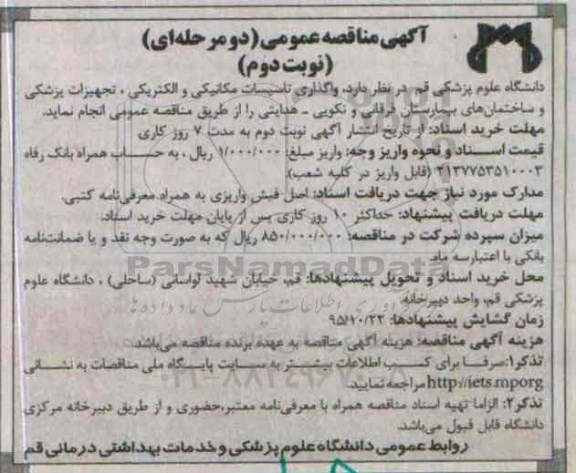 آگهی مناقصه عمومی (دو مرحله‌ای)
(نوبت دوم)
دانشگاه علوم پزشکی قم در نظر دارد، واگذاری تاسیسات مکانیکی و الکتریکی ، تجهیزات پزشکی
و ساختمان‌های بیمارستان فرقانی و نکویی ـ هدایتی را از طریق مناقصه عمومی انجام نماید.
مهلت خرید اسناد: از تاریخ انتشار آگهی نوبت دوم به مدت ۷ روز کاری
قیمت اسناد و نحوه واریز وجه: واریز مبلغ ۱/۰۰۰/۰۰۰ ریال ، به حساب همراه بانک رفاه
۲۱۳۷۷۵۳۵۱۰۰۰۳ (قابل واریز در کلیه شعب)
مدارک مورد نیاز جهت دریافت اسناد: اصل فیش واریزی به همراه معرفی‌نامه کتبی.
مهلت دریافت پیشنهاد: حداکثر ۱۰ روز کاری پس از پایان مهلت خرید اسناد.
میزان سپرده شرکت در مناقصه: ۸۵۰/۰۰۰/۰۰۰ ریال که به صورت وجه نقد و یا ضمانتنامه
بانکی با اعتبار سه ماه
محل خرید اسناد و تحویل پیشنهادها: قم، خیابان شهید لواسانی (ساحلی) ، دانشگاه علوم
پزشکی قم، واحد دبیرخانه
زمان گشایش پیشنهادها: ۹۵/۱۰/۲۲
هزینه آگهی مناقصه: هزینه آگهی مناقصه به عهده برنده مناقصه می‌باشد.
تذکر۱: صرفا برای کسب اطلاعات بیشتر به سایت پایگاه ملی مناقصات به نشانی
http://iets.mporg مراجعه نمایید.
تذکر۲: الزاما تهیه اسناد مناقصه همراه با معرفی‌نامه معتبر، حضوری و از طریق دبیرخانه مرکزی
دانشگاه قابل قبول می‌باشد.
روابط عمومی دانشگاه علوم پزشکی و خدمات بهداشتی درمانی قم
ParsNamadData
۰۲۱-۸۸۳۴۹۶۷۰-۵